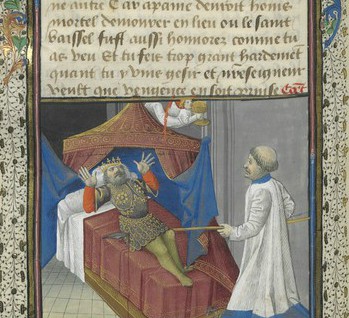 ne autre Car a paine devroit homs
mortel demourer en lieu ou le saint
vaissel fust aussi honnorez comme tu
as veu Et tu feis trop grant hardement
quant tu y vins gesir et presengnent
veult que vengence en soit prinse Car